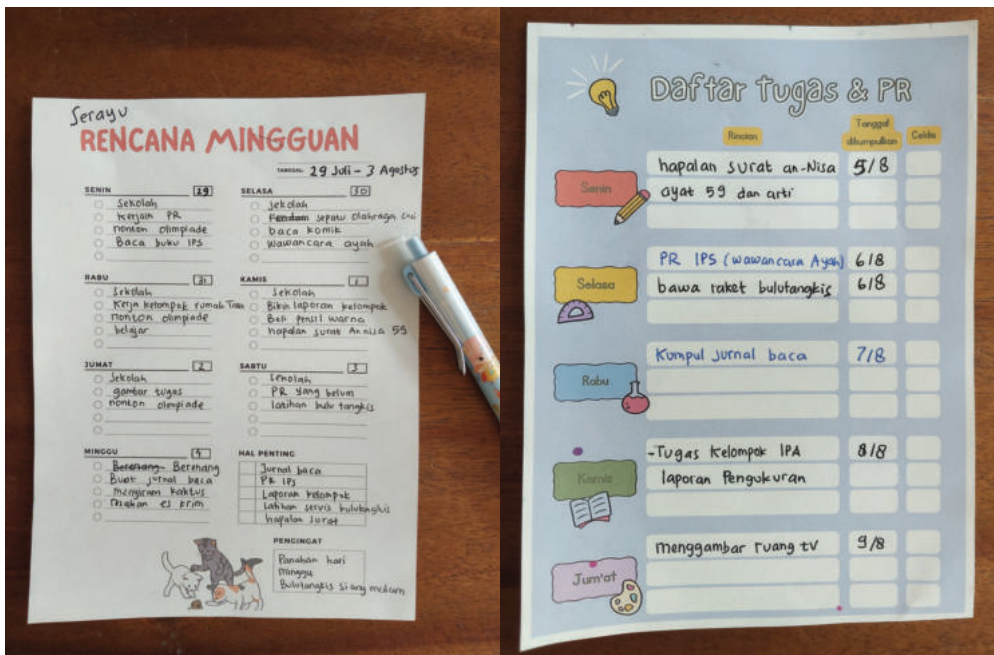 Serayu
RENCANA MINGGUAN
TANGGAL: 29 Juli - 3 Agostos
SENIN 29
Sekolah
Kerjain PR
nonton olimpiade
Baca buku IPS
SELASA 30
Sekolah
sepatu olahraga cuci
baca komik
wawancara ayah
RABU 31
Sekolah
Kerja kelompok rumah
nonton olimpiade
belajar
KAMIS 1
Sekolah
Bikin laporan kelompok
Beli pensil warna
hapalan surat Annisa 59
JUMAT 2
Sekolah
gambar tugas
nonton olimpiade
SABTU 3
Sekolah
PR yang belum
latihan bulu tangkis
MINGGU 4
Berenang Berenang
Buat jurnal baca
menyiram kaktus
makan es krim
HAL PENTING
Jurnal baca
PR IPS
Laporan kelompok
Latihan servis bulutangkis
hapalan surat
PENGINGAT
Panahan hari
minggu
Bulutangkis siang
Daftar Tugas & PR
Rincian
Tanggal dikumpulkan
Ceklis
Senin
hapalan surat an-Nisa 5/8
ayat 59 dan arti
Selasa
PR IPS (wawancara Ayah) 6/8
bawa raket bulutangkis 6/8
Rabu
Kumpul jurnal baca 7/8
Kamis
-Tugas Kelompok IPA 8/8
laporan Pengukuran
Jum'at
menggambar ruang tv 9/8